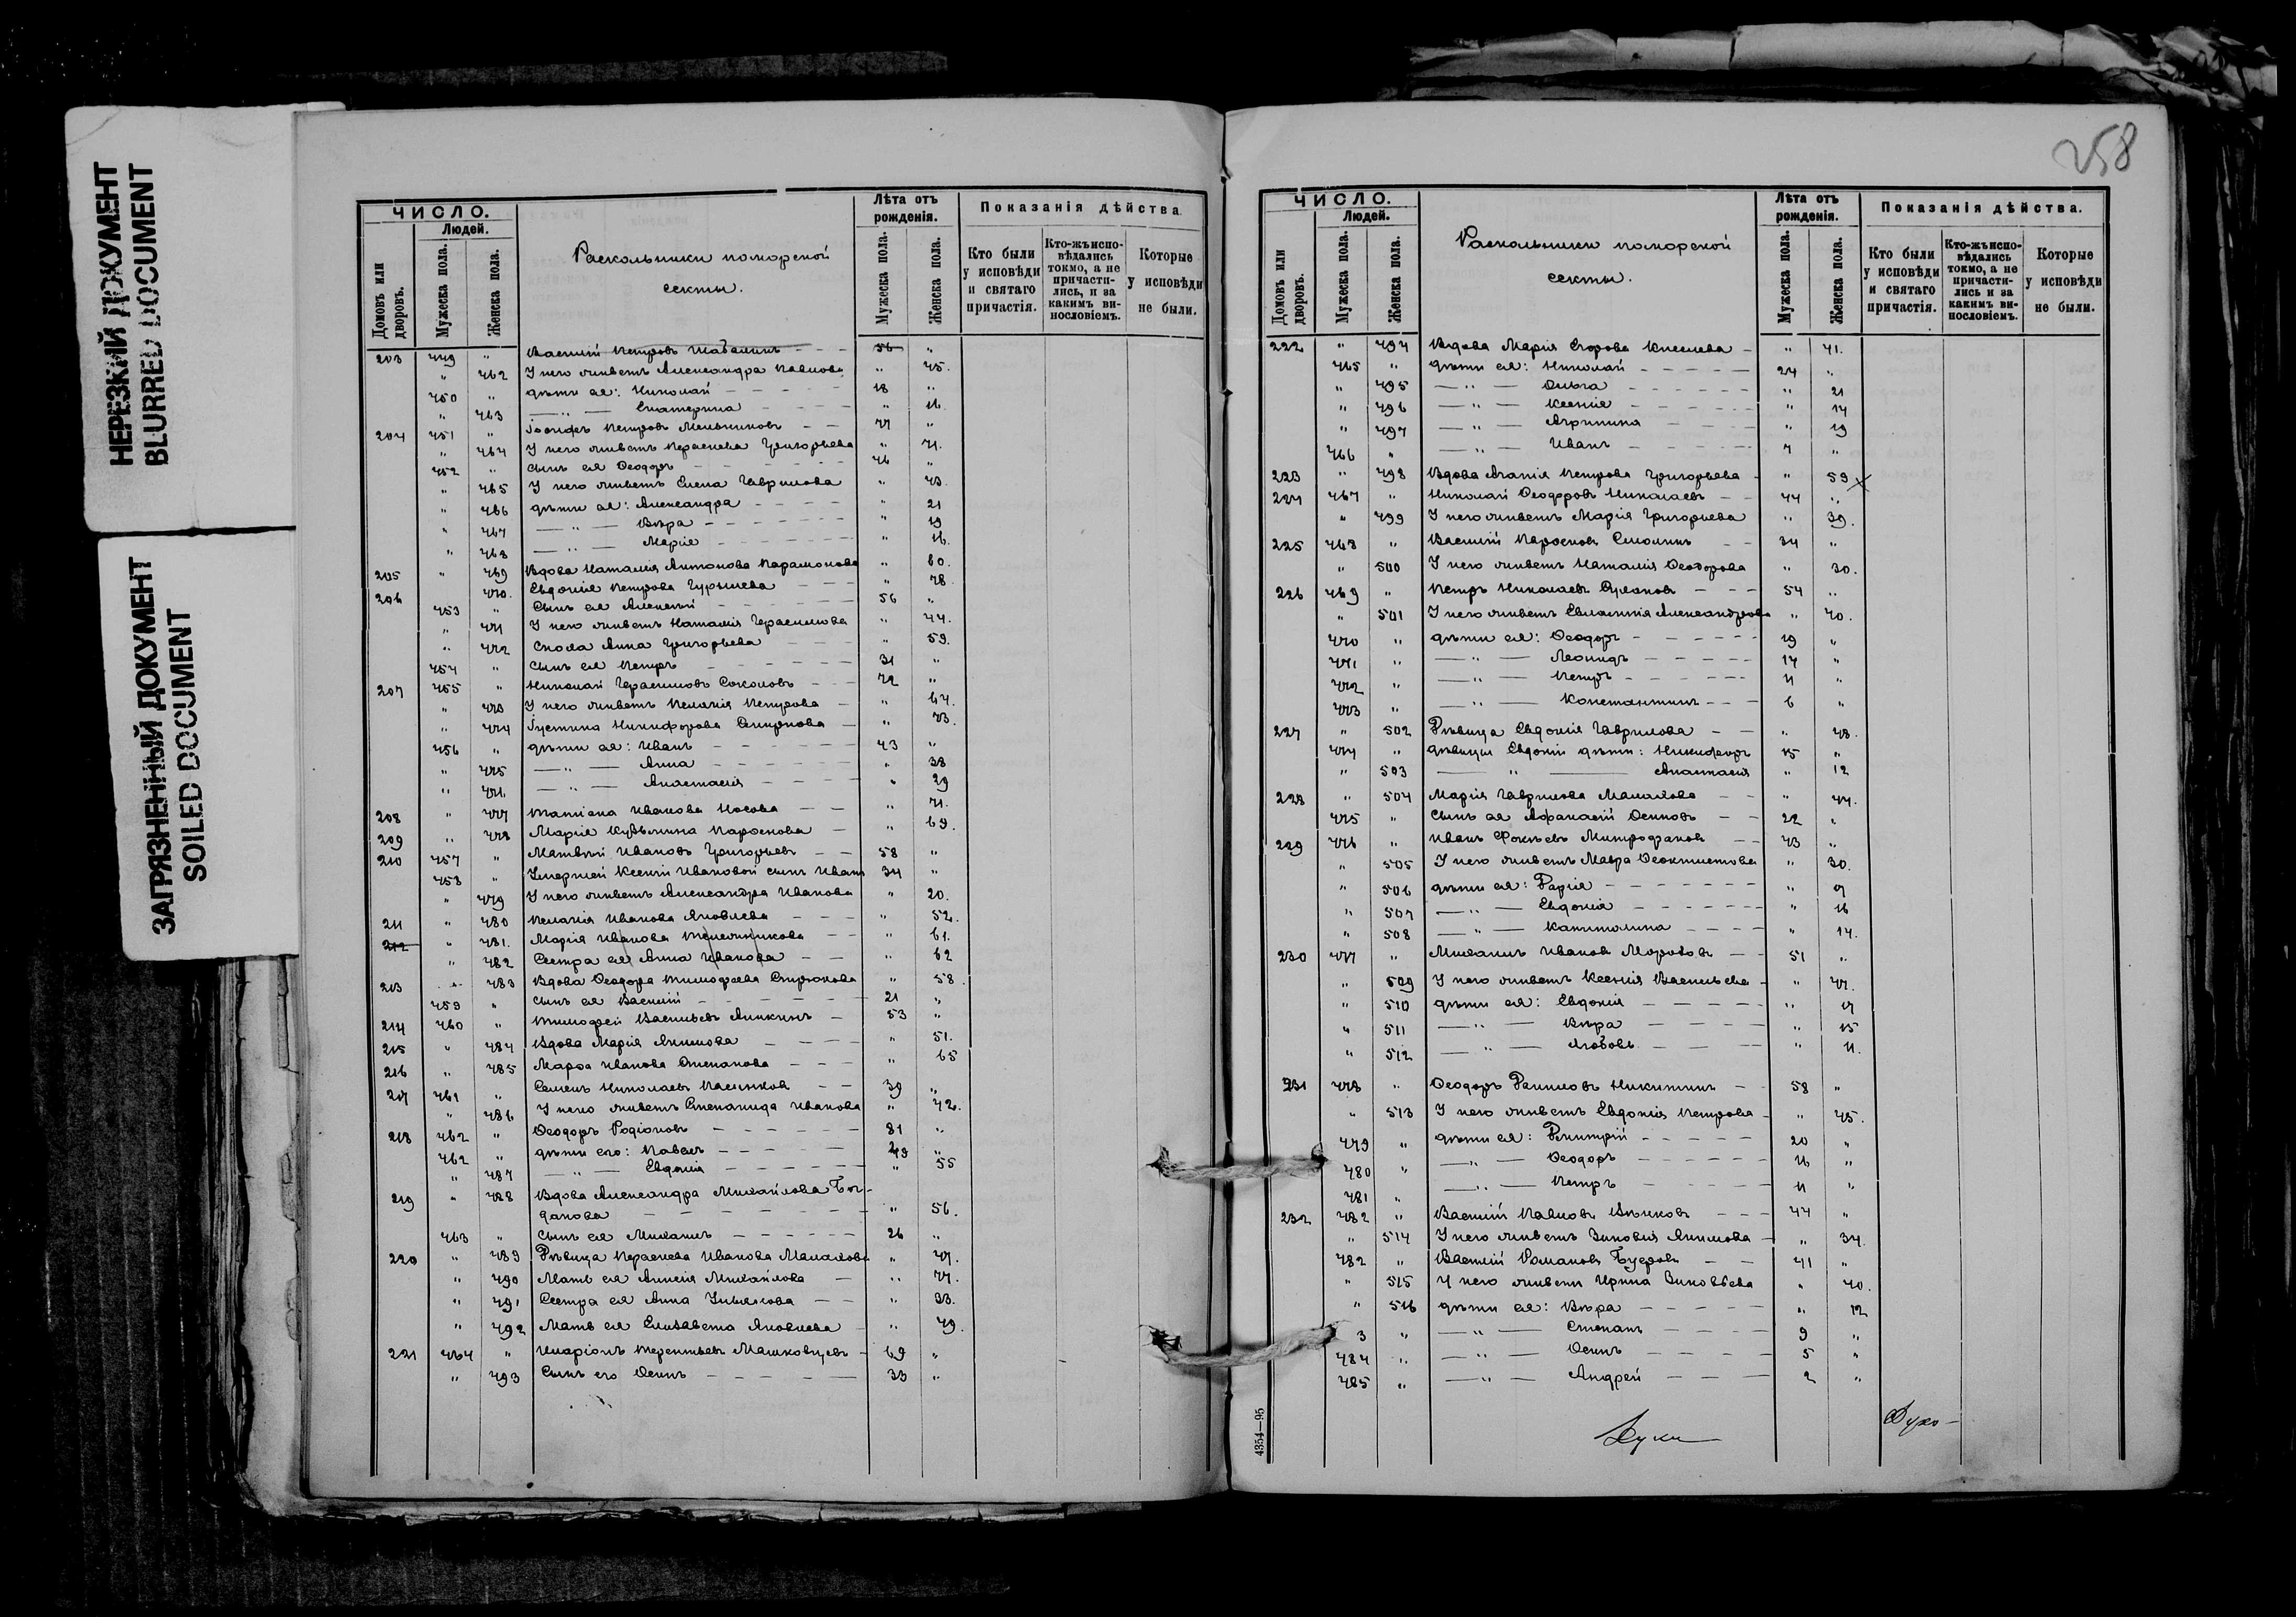 НЕРЕЗКИЙ ДОКУМЕНТ
BLURRED DOCUMENT
ЗАГРЯЗНЕННЫЙ ДОКУМЕНТ
SOILED DOCUMENT
ЧИСЛО.
Людей.
Домовъ или дворовъ.
Мужеска пола.
Женска пола.
Раскольники поморской
секты.
Лѣта отъ
рожденія.
Мужеска пола.
Женска пола.
Показанія дѣйства
Кто были
у исповѣди
и святаго
причастія.
Кто-жъ испо-
вѣдались
токмо, а не
причасти-
лись, и за
какимъ ви-
нословіемъ.
Которые
у исповѣди
не были.
203 449 " Василій Петровъ 56 "
" 462 У него живетъ Александра Павлова " 45.
450 " дѣти ея: Николай 18 "
" 463 — " — Екатерина " 16
204 451 " Іосифъ Петровъ Мельниковъ 77 "
" 464 У него живетъ Параскева Григорьева " 71.
452 " Сынъ ея Ѳеодоръ 46 "
" 465 У него живетъ Елена Гаврилова " 43.
" 466 дѣти ея: Александра " 21
" 467 — " — Вѣра " 19
" 468 — " — Марія " 16.
205 " 469 Вдова Наталия Антонова Парамонова " 60.
206 " 470. Евдокія Петрова Гурылева " 78
453 " Сынъ ея Алексѣй 56 "
" 471 У него живетъ Наталія Герасимова " 44.
" 472 Сноха Анна Григорьева " 59.
454 " Сынъ ея Петръ 31 "
207 455 " Николай Герасимовъ Соколовъ 72 "
" 473 У него живетъ Пелагія Петрова " 64.
" 474 Іустина Никифорова Смирнова " 73.
456 " дѣти ея: Иванъ 43 "
" 475 — " — Анна " 38
" 476 — " — Анастасія " 29
208 " 477 Татіана Иванова Носова " 71.
209 " 478 Марія Кузьмина Паросковa " 69.
210 457 " Матвѣй Ивановъ Григорьевъ 58 "
458 " Умершей Ксеніи Ивановой сынъ Иванъ 34 "
" 479 У него живетъ Александра Иванова " 20.
211 " 480 Пелагія Иванова Яковлева " 52.
212 " 481. Марія Иванова " 61.
" 482 Сестра ея Анна Иванова " 62
213 " 483 Вдова Ѳеодора Тимофеева Спиронова " 58.
459 " Сынъ ея Василій 21 "
214 460 " Тимофей Васильевъ Аникинъ 53 "
215 " 484 Вдова Марія Акимова " 51.
216 " 485 Марѳа Иванова Степанова " 65
217 461 " Семенъ Николаевъ 39 "
" 486 У него живетъ Степанида Иванова " 42.
218 462 " Ѳеодоръ Родіоновъ 81 "
462 " дѣти его: Павелъ 49 "
" 487 — " — Евдокія " 55
219 " 488 Вдова Александра Михайлова Бог-
данова " 56.
463 " Сынъ ея Михаилъ 26 "
220 " 489 Дѣвица Параскева Иванова Малахова " 47.
" 490 Мать ея Анисія Михайлова " 77.
" 491 Сестра ея Анна Ульянова " 33.
" 492 Мать ея Елизавета Яковлева " 79.
221 464 " Иларіонъ Терентьевъ Машковцевъ 69 "
" 493 Сынъ его Осипъ 33 "
258
ЧИСЛО.
Людей.
Домовъ или дворовъ.
Мужеска пола.
Женска пола.
Раскольники поморской
секты.
Лѣта отъ
рожденія.
Мужеска пола.
Женска пола.
Показанія дѣйства.
Кто были
у исповѣди
и святаго
причастія.
Кто-жъ испо-
вѣдались
токмо, а не
причасти-
лись и за
какимъ ви-
нословіемъ.
Которые
у исповѣди
не были.
222 " 494 Вдова Марія Егорова Киселева " 41.
465 " дѣти ея: Николай 24 "
" 495 — " — Ольга " 21
" 496 — " — Ксенія " 14
" 497 — " — Агрипина " 19
466 " — " — Иванъ 7 "
223 " 498 Вдова Агапія Петрова Григорьева " 59
224 467 " Николай Ѳеодоровъ Николаевъ 44 "
" 499 У него живетъ Марія Григорьева " 39.
225 468 " Василій Смолинъ 34 "
" 500 У него живетъ Наталія Ѳеодорова " 30.
226 469 " Петръ Николаевъ 54 "
" 501 У него живетъ Евлампія Александрова " 40.
470 " дѣти ея: Ѳеодоръ 19 "
471 " — " — Леонидъ 14 "
472 " — " — Петръ 11 "
473 " — " — Константинъ 6 "
227 " 502 Дѣвица Евдокія Гаврилова " 48.
474 " Дѣвицы Евдокіи дѣти: Никифоръ 15 "
" 503 — " — Анастасія " 12
228 " 504 Марія Гаврилова Малахова " 47.
475 " Сынъ ея Афанасій Осиповъ 22 "
229 476 " Иванъ Фокѣевъ Митрофановъ 43 "
" 505 У него живетъ Мавра Ѳеоктистова " 30.
" 506 дѣти ея: Дарія " 9
" 507 — " — Евдокія " 16
" 508 — " — Капитолина " 14.
230 477 " Михаилъ Ивановъ Морозовъ 51 "
" 509 У него живетъ Ксенія Васильева " 47.
" 510 дѣти ея: Евдокія " 17
" 511 — " — Вѣра " 15
" 512 — " — Любовь " 11.
231 478 " Ѳеодоръ Даниловъ Никитинъ 58 "
" 513 У него живетъ Евдокія Петрова " 45.
479 " дѣти ея: Димитрій 20 "
480 " — " — Ѳеодоръ 16 "
481 " — " — Петръ 11 "
232 482 " Василій Павловъ 44 "
" 514 У него живетъ Зиновія Акимова " 34.
482 " Василій Романовъ 41 "
" 515 У него живетъ Ирина Зиновьева " 40.
" 516 дѣти ея: Вѣра " 12
3 " — " — Степанъ 9 "
484 " — " — Осипъ 5 "
485 " — " — Андрей 2 "
Духо-
4354—95